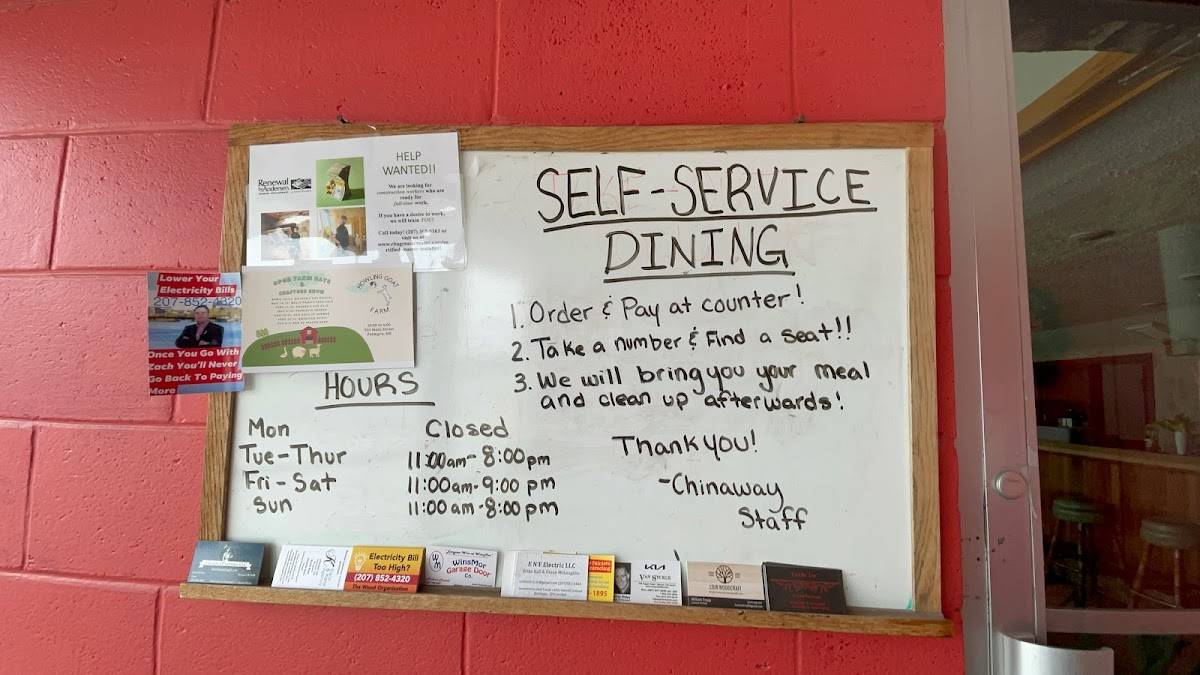 SELF-SERVICE
DINING
1. Order & Pay at counter!
2. Take a number & Find a seat!!
3. We will bring you your meal
and clean up afterwards!
Thank you!
-Chinaway
Staff
HOURS
Mon Closed
Tue-Thur 11:00am-8:00pm
Fri-Sat 11:00am-9:00 pm
Sun 11:00am-8:00pm
Renewal
byAndersen
HELP
WANTED!!
We are looking for
construction workers who are
ready for
full-time work.
If you have a desire to work,
we will train YOU!
OPEN FARM DAYS
&
CRAFTERS SHOW
HOWLING GOAT
FARM
Lower Your
Electricity Bills
207-852-4320
Once You Go With
Zach You'll Never
Go Back To Paying
More
Electricity Bill
Too High?
(207) 852-4320
WM
WinsMor
Garage Door
Co.
E N V Electric LLC
-1895
KIA
VAN SYCKLE